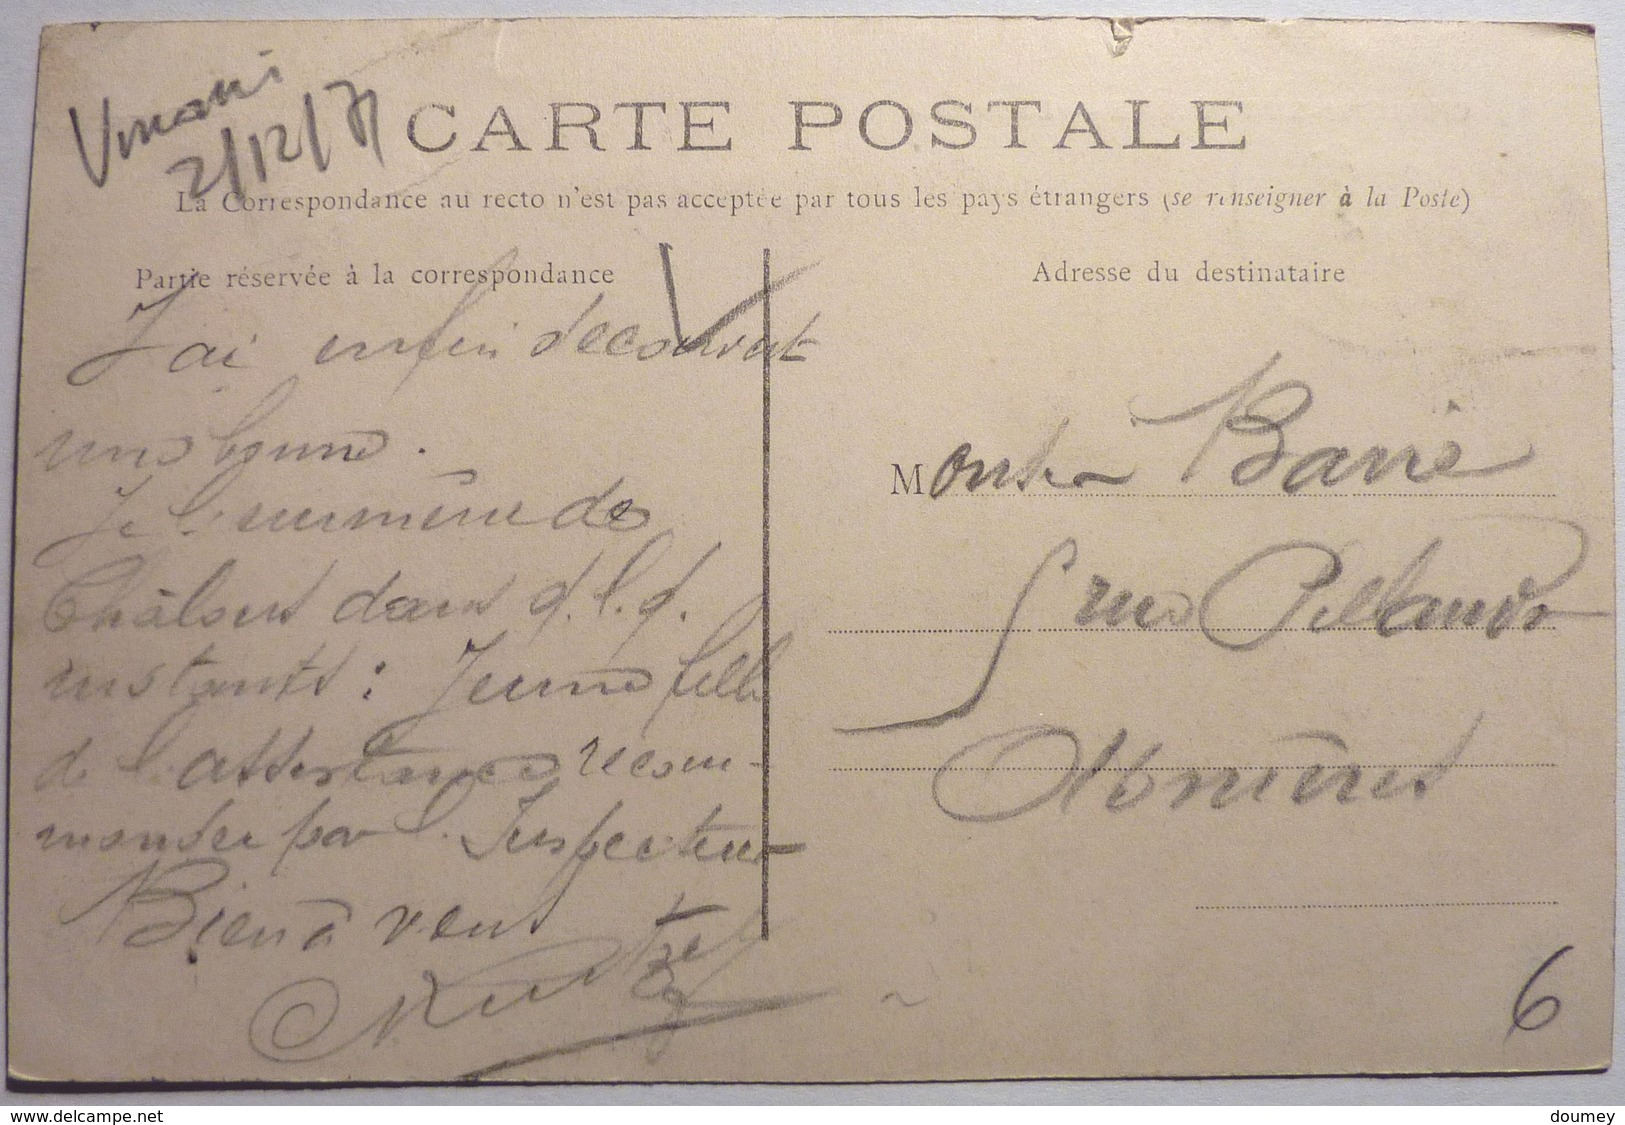 2/12/71
CARTE POSTALE
La Correspondance au recto n'est pas acceptée par tous les pays étrangers (se renseigner à la Poste)
Partie réservée à la correspondance
Adresse du destinataire
J'ai enfin découvert
une bonne.
Je l'emmène de
Châlons dans q.l.q.
instants : Jeune fille
de l'assistance recom-
mandée par l'Inspecteur
Bien à vous
Monsieur Barré
5 rue
Asnières
6
delcampe.net
doumey